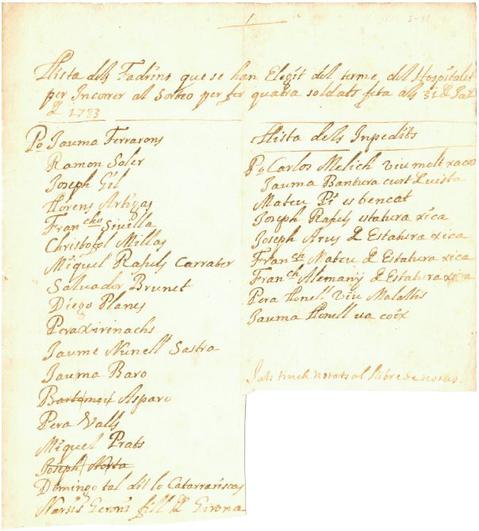 Llista dels Fadrins que se han Elegit del terme del Hospitalet
per Incorrer al Sorteo per fer quatra soldats feta als 31 de
de 1733
Po Jauma Ferrasons
Ramon Soler
Joseph Gil
Llorens Artigas
Franchо Sivilla
Christofol Millas
Miquel Rafuls Carrater
Salvador Brunet
Diego Planes
Pera xirinachs
Jaume Nunell Sastra
Jauma Baro
Bartomeu Asparo
Pera Valls
Miquel Prats
Joseph Horta
Domingo tal dit lo Catarrariscas
Narsis Gerons fill de Girona
Llista dels Inpedits
Po Carlos Melich viu molt
Jauma Bantura curt de vista
Mateu Pi es bencat
Joseph Rafuls estatura xica
Joseph Arus de Estatura xica
Mateu de Estatura xica
Alemany de Estatura xica
Pera Honell viu Malaltis
Jauma Honell va coix
Jals tinch notats al llibre de notas.